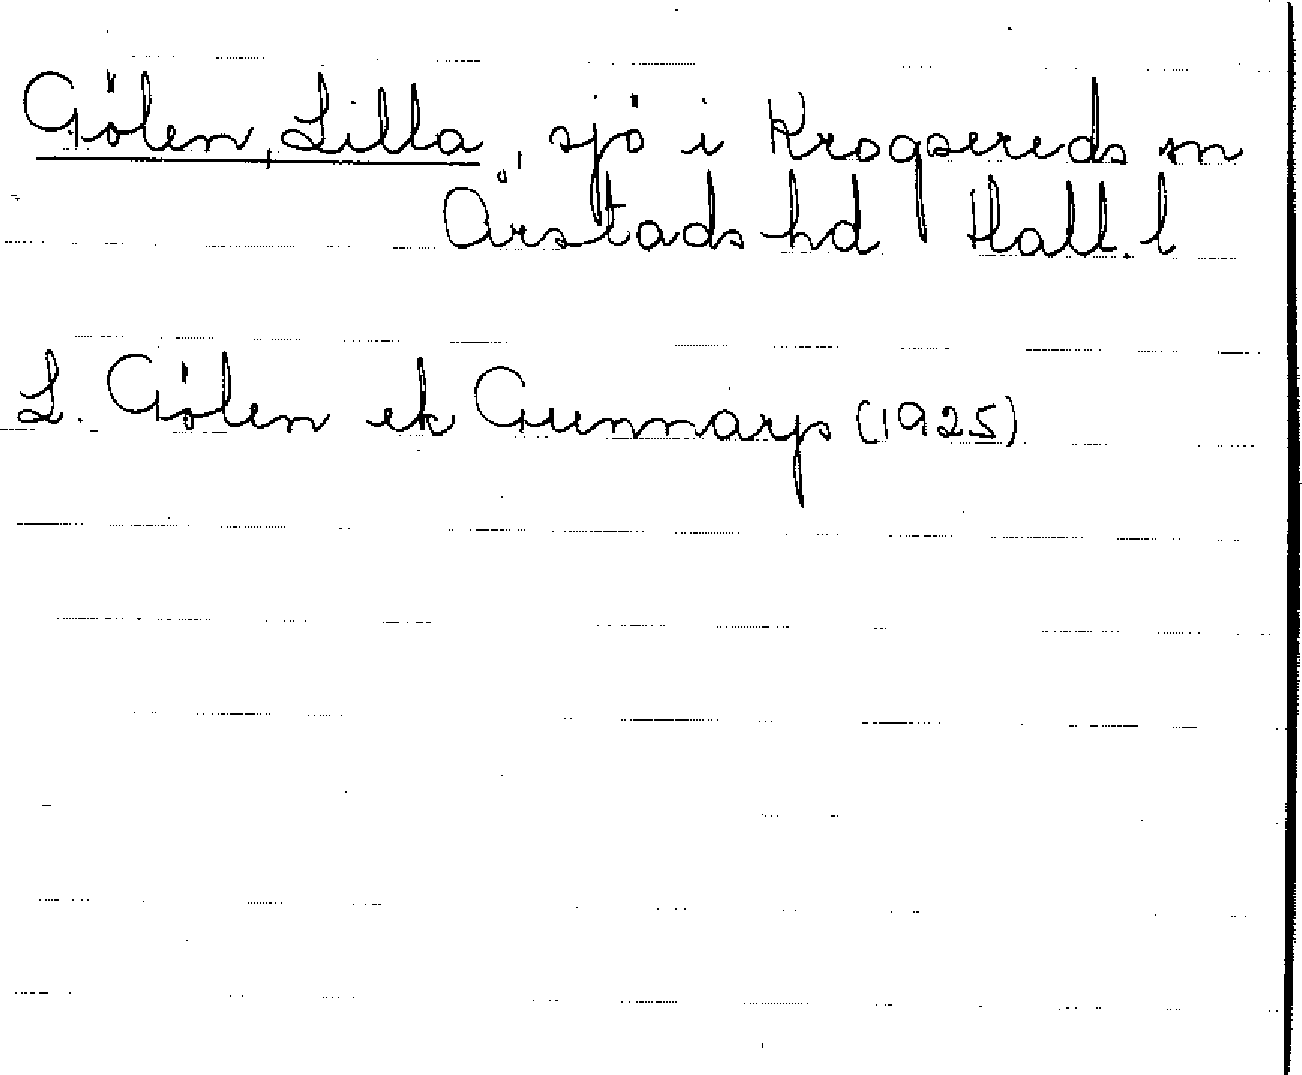 Gölen, Lilla, sjö i Krogsereds sn
Årstads hd Hall. l
L. Gölen ek Gunnarp (1925)